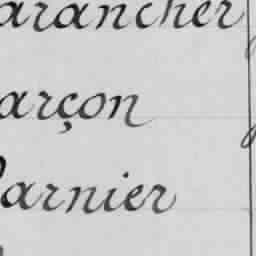 arancher
arçon
arnier